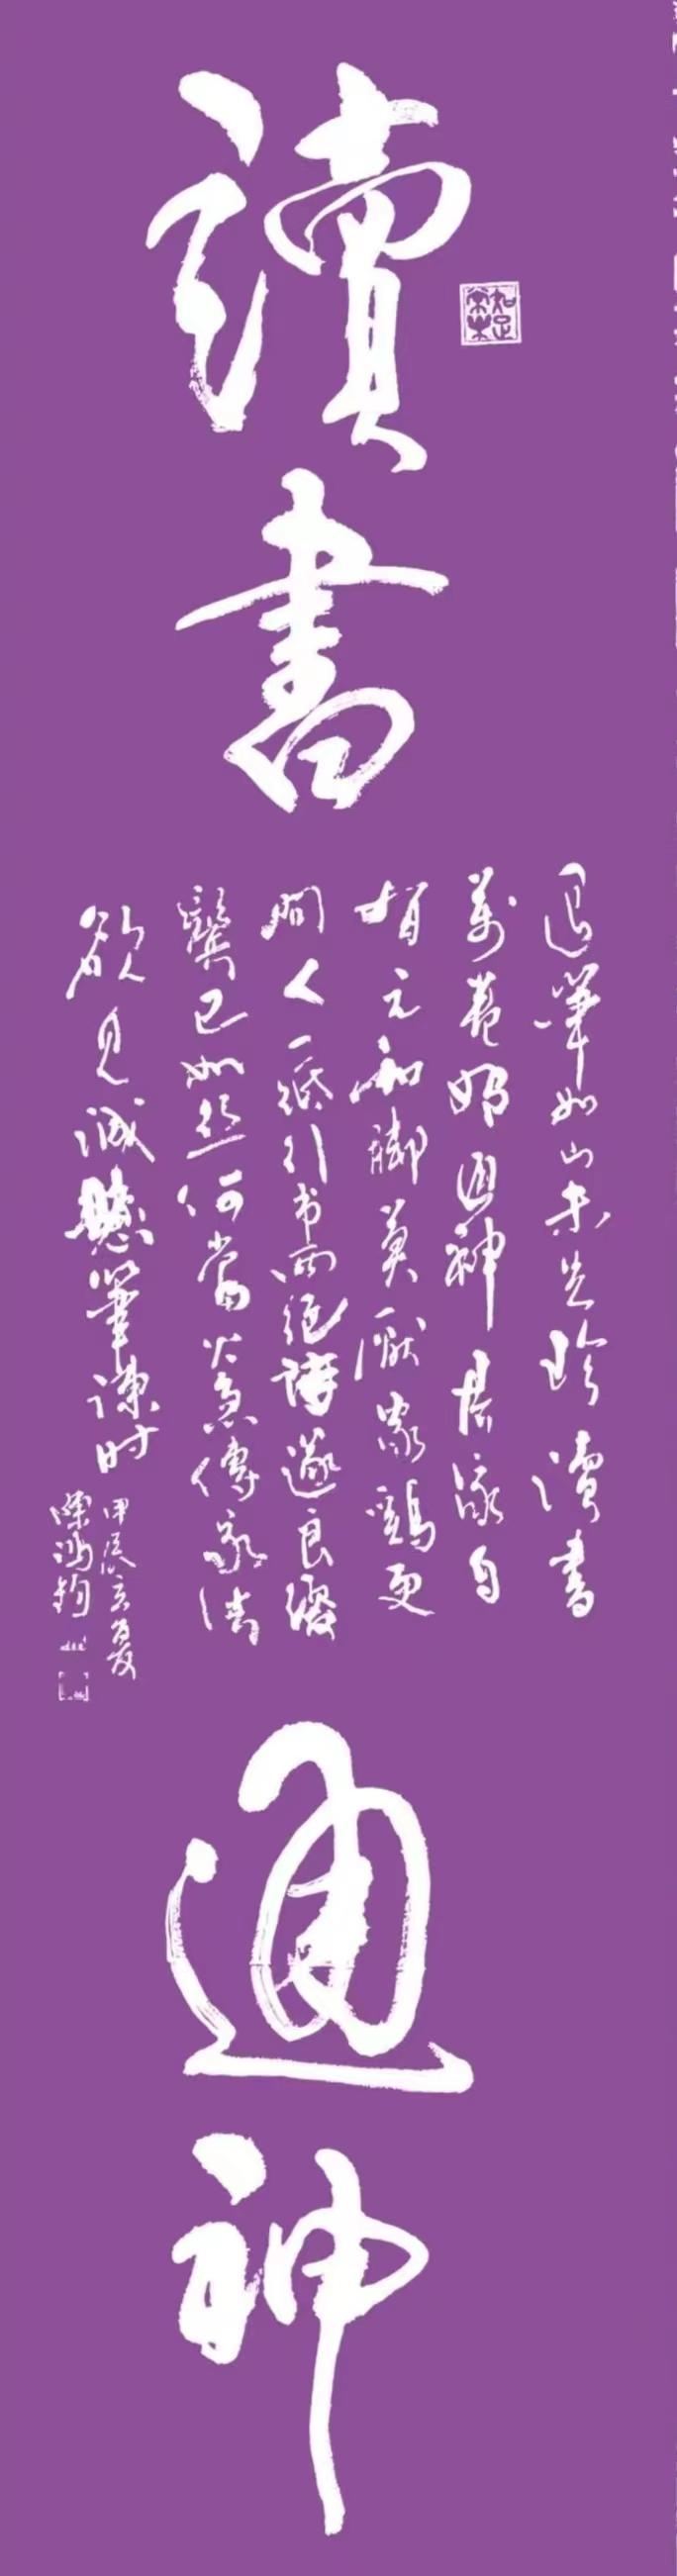 讀
書
通
神
知足常樂
退筆如山未足珍讀書
萬卷始通神君家自
有元和脚莫厭家鷄更
問人一紙行书兩絕詩遂良鬚
鬢已如丝何當火急傳家法
欲見誠懸筆諫时
甲辰夏
陳鴻鈞